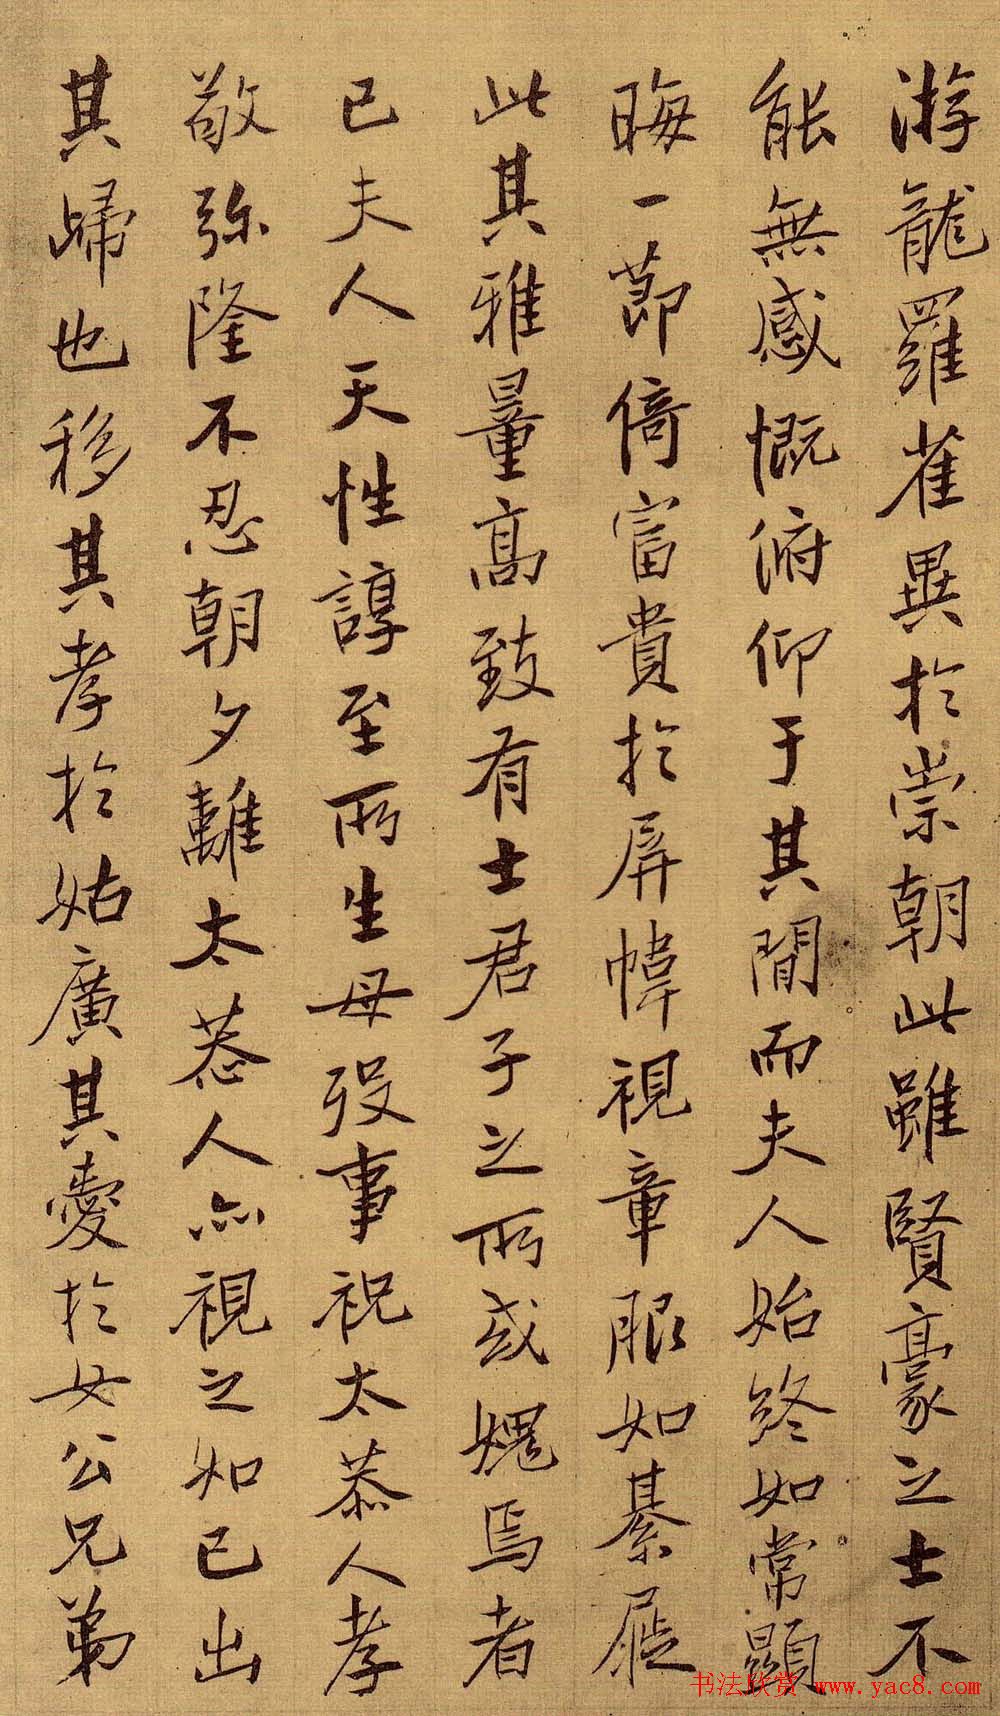 游龍羅雀異於崇朝此雖賢豪之士不
能無感慨俯仰于其間而夫人始終如常顯
晦一節倚富貴於屏幃視章服如綦屣
此其雅量高致有士君子之所或媿焉者
已夫人天性諄至所生母歿事祝太恭人孝
敬弥隆不忍朝夕離太恭人亦視之如已出
其歸也移其孝於姑廣其愛於女公兄弟
书法欣赏 www.yac8.com